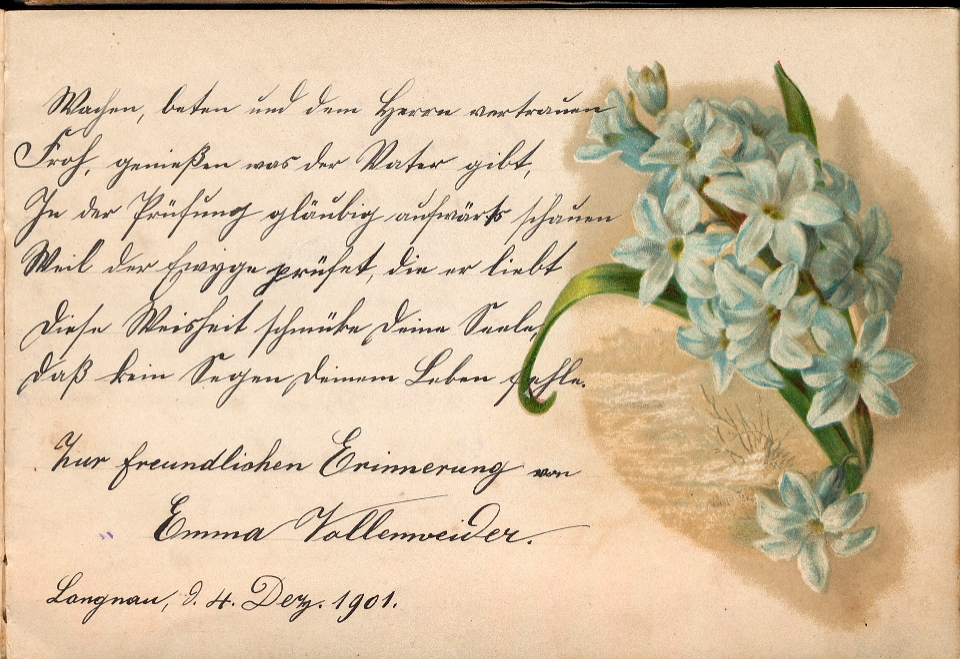 Wachen, beten und dem Herrn vertrauen
Froh, genießen was der Vater gibt,
In der Prüfung gläubig aufwärts schauen
Weil der Ewyge prüfet, die er liebt
Diese Weisheit schmüke Deine Seele,
Daß kein Segen Deinem Leben fehle.
Zur freundlichen Erinnerung von
Emma Vollenweider.
Langnau, d. 4. Dez. 1901.